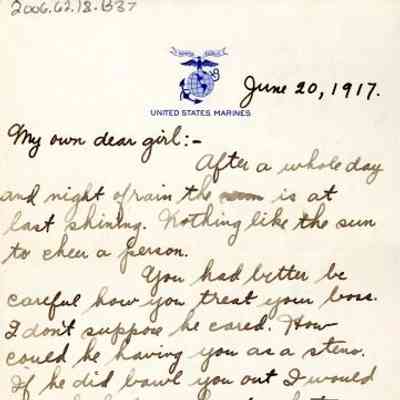 2006.62.18.B37
SEMPER FIDELIS
UNITED STATES MARINES
June 20, 1917.
My own dear girl:-
After a whole day
and night of rain the is at
last shining. Nothing like the sun
to cheer a person.
You had better be
careful how you treat your boss.
I don't suppose he cared. How
could he having you as a steno.
If he did bawl you out I would